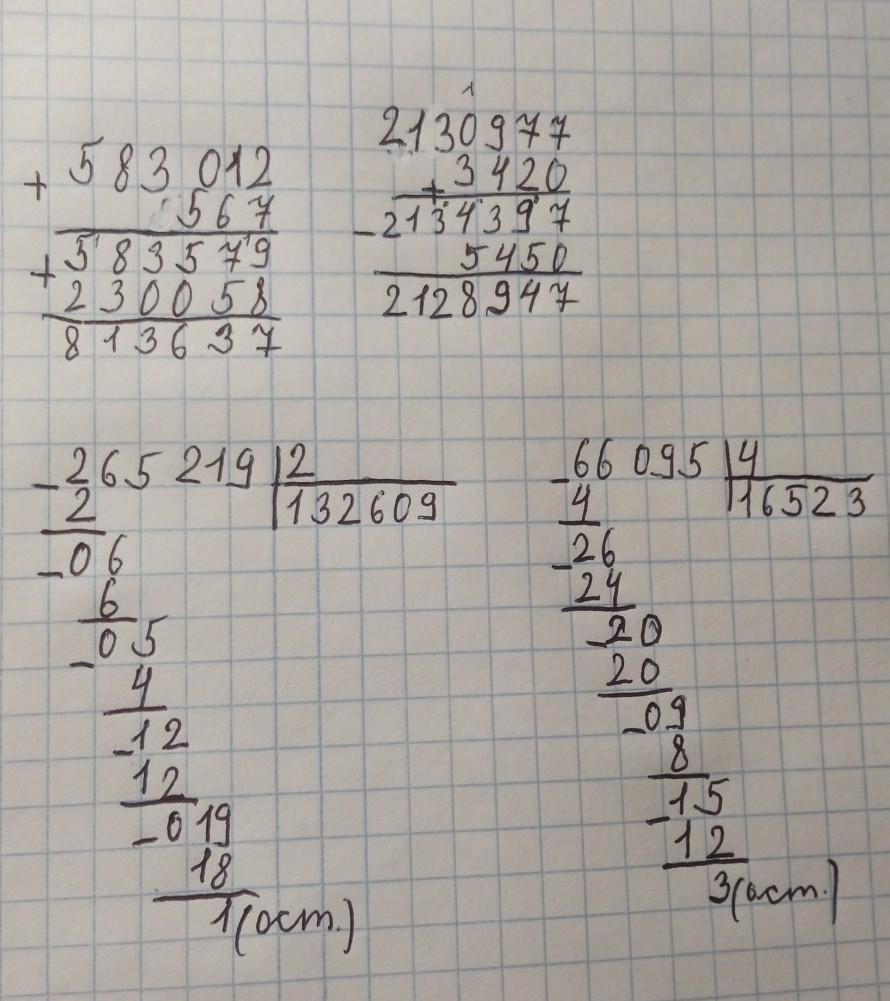 + 583 012
567
+ 583579
230058
813637
1
2130977
+ 3420
- 2134397
5450
2128947
- 265 219 | 2
2 | 132609
- 06
6
- 05
4
- 12
12
- 019
18
1 (ост.)
- 66 095 | 4
4 | 16523
- 26
24
- 20
20
- 09
8
- 15
12
3 (ост.)